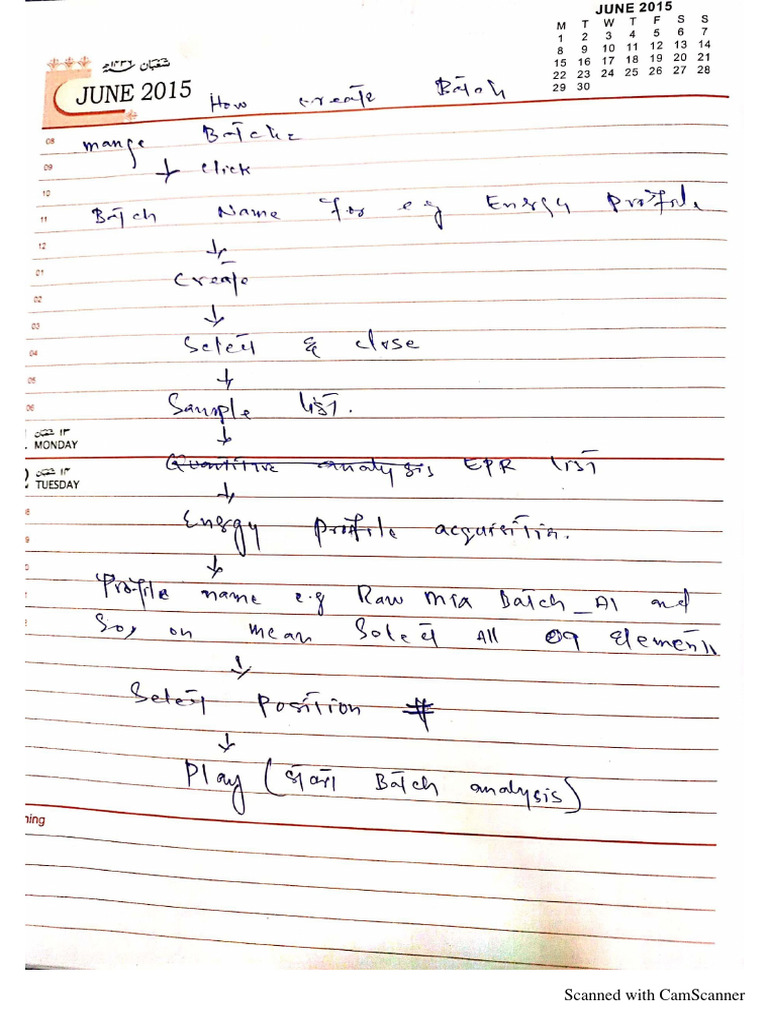 JUNE 2015
M T W T F S S
1 2 3 4 5 6 7
8 9 10 11 12 13 14
15 16 17 18 19 20 21
22 23 24 25 26 27 28
29 30
شعبان ۱۴۳۶ھ
JUNE 2015
How create Batch
08 mange Batche
09 ↓ click
10
11 Batch Name for e g Energy Profile
12 ↓
01 create
02 ↓
03 Select & close
04
05 ↓
06 Sample list.
۱۳ شعبان ↓
MONDAY
Quantitive analysis EPR list
۱۳ شعبان
TUESDAY
↓
Energy Profile acquisition.
↓
Profile name e.g Raw mix Batch_Al and
so, on mean Select All 09 elements
↓
Select Position #
↓
Play (start Batch analysis)
ning
Scanned with CamScanner